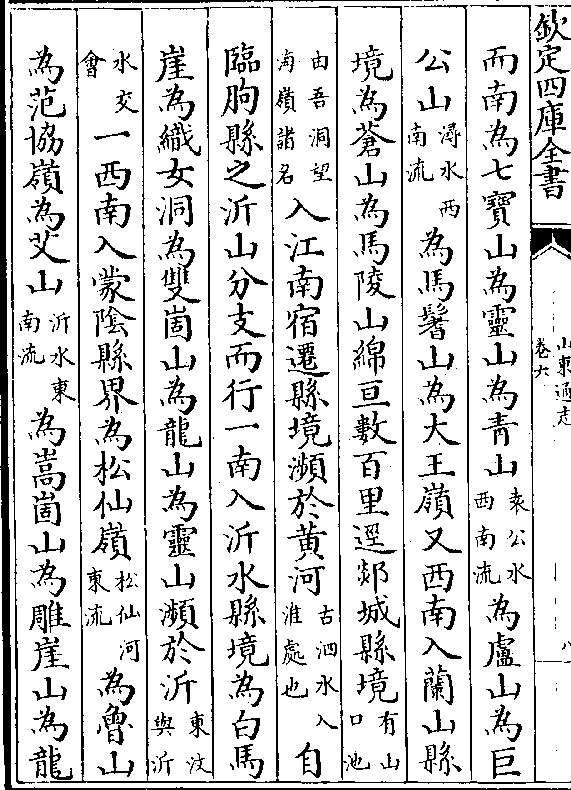 欽定四庫全書
山東通志
卷六
八
而南為七寳山為靈山為青山袁公水西南流為盧山為巨
公山潯水西南流為馬鬐山為大王嶺又西南入蘭山縣
境為蒼山為馬陵山綿亘數百里逕郯城縣境有山口池
由吾洞望海嶺諸名入江南宿遷縣境瀕於黄河古泗水入淮處也自
臨朐縣之沂山分支而行一南入沂水縣境為白馬
崖為織女洞為雙崮山為龍山為靈山瀕於沂東汶與沂
水交會一西南入蒙陰縣界為松仙嶺松仙河東流為魯山
為范協嶺為艾山沂水東南流為嵩崮山為雕崖山為龍